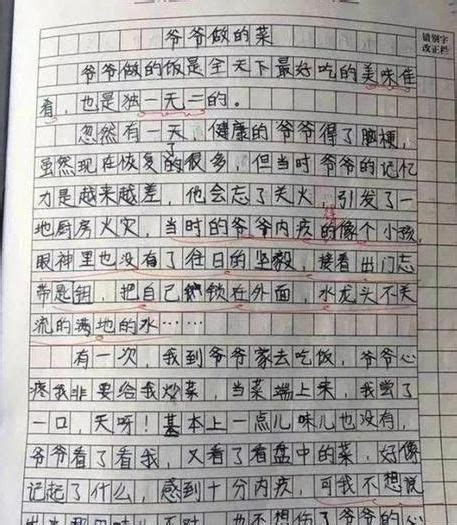 爷爷做的菜
错别字
改正栏
爷爷做的饭是全天下最好吃的美味佳
肴，也是独一无二的。
忽然有一天，健康的爷爷得了脑梗，
虽然现在恢复了的很多，但当爷爷的记忆
力是越来越差，他会忘了关火，引发了一
地厨房火灾，当时的爷爷内疚的像个小孩，
眼神里也没有了往日的坚毅，接着出门忘
带是钥，把自己锁在外面，水龙头不关
流的满地的水……
有一次，我到爷爷家去吃饭，爷爷心
疼我非要给我炒菜，当菜端上来，我尝了
一口，天呀！基本上一点儿味儿也没有，
爷爷看了看我，又看了看盘中的菜，好像
记起了什么，感到十分内疚，可我不想说